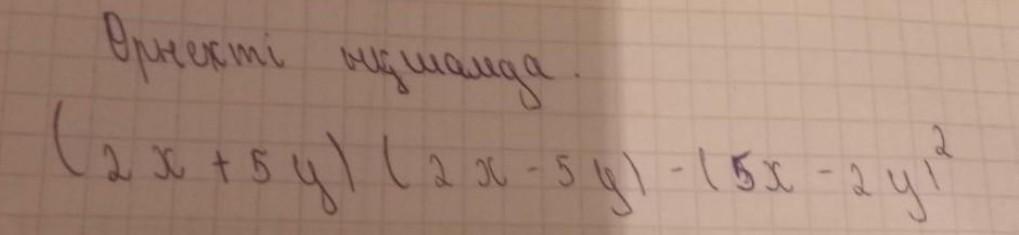 Өрнекті ықшамда.
(2x + 5y) (2x - 5y) - (5x - 2y)²